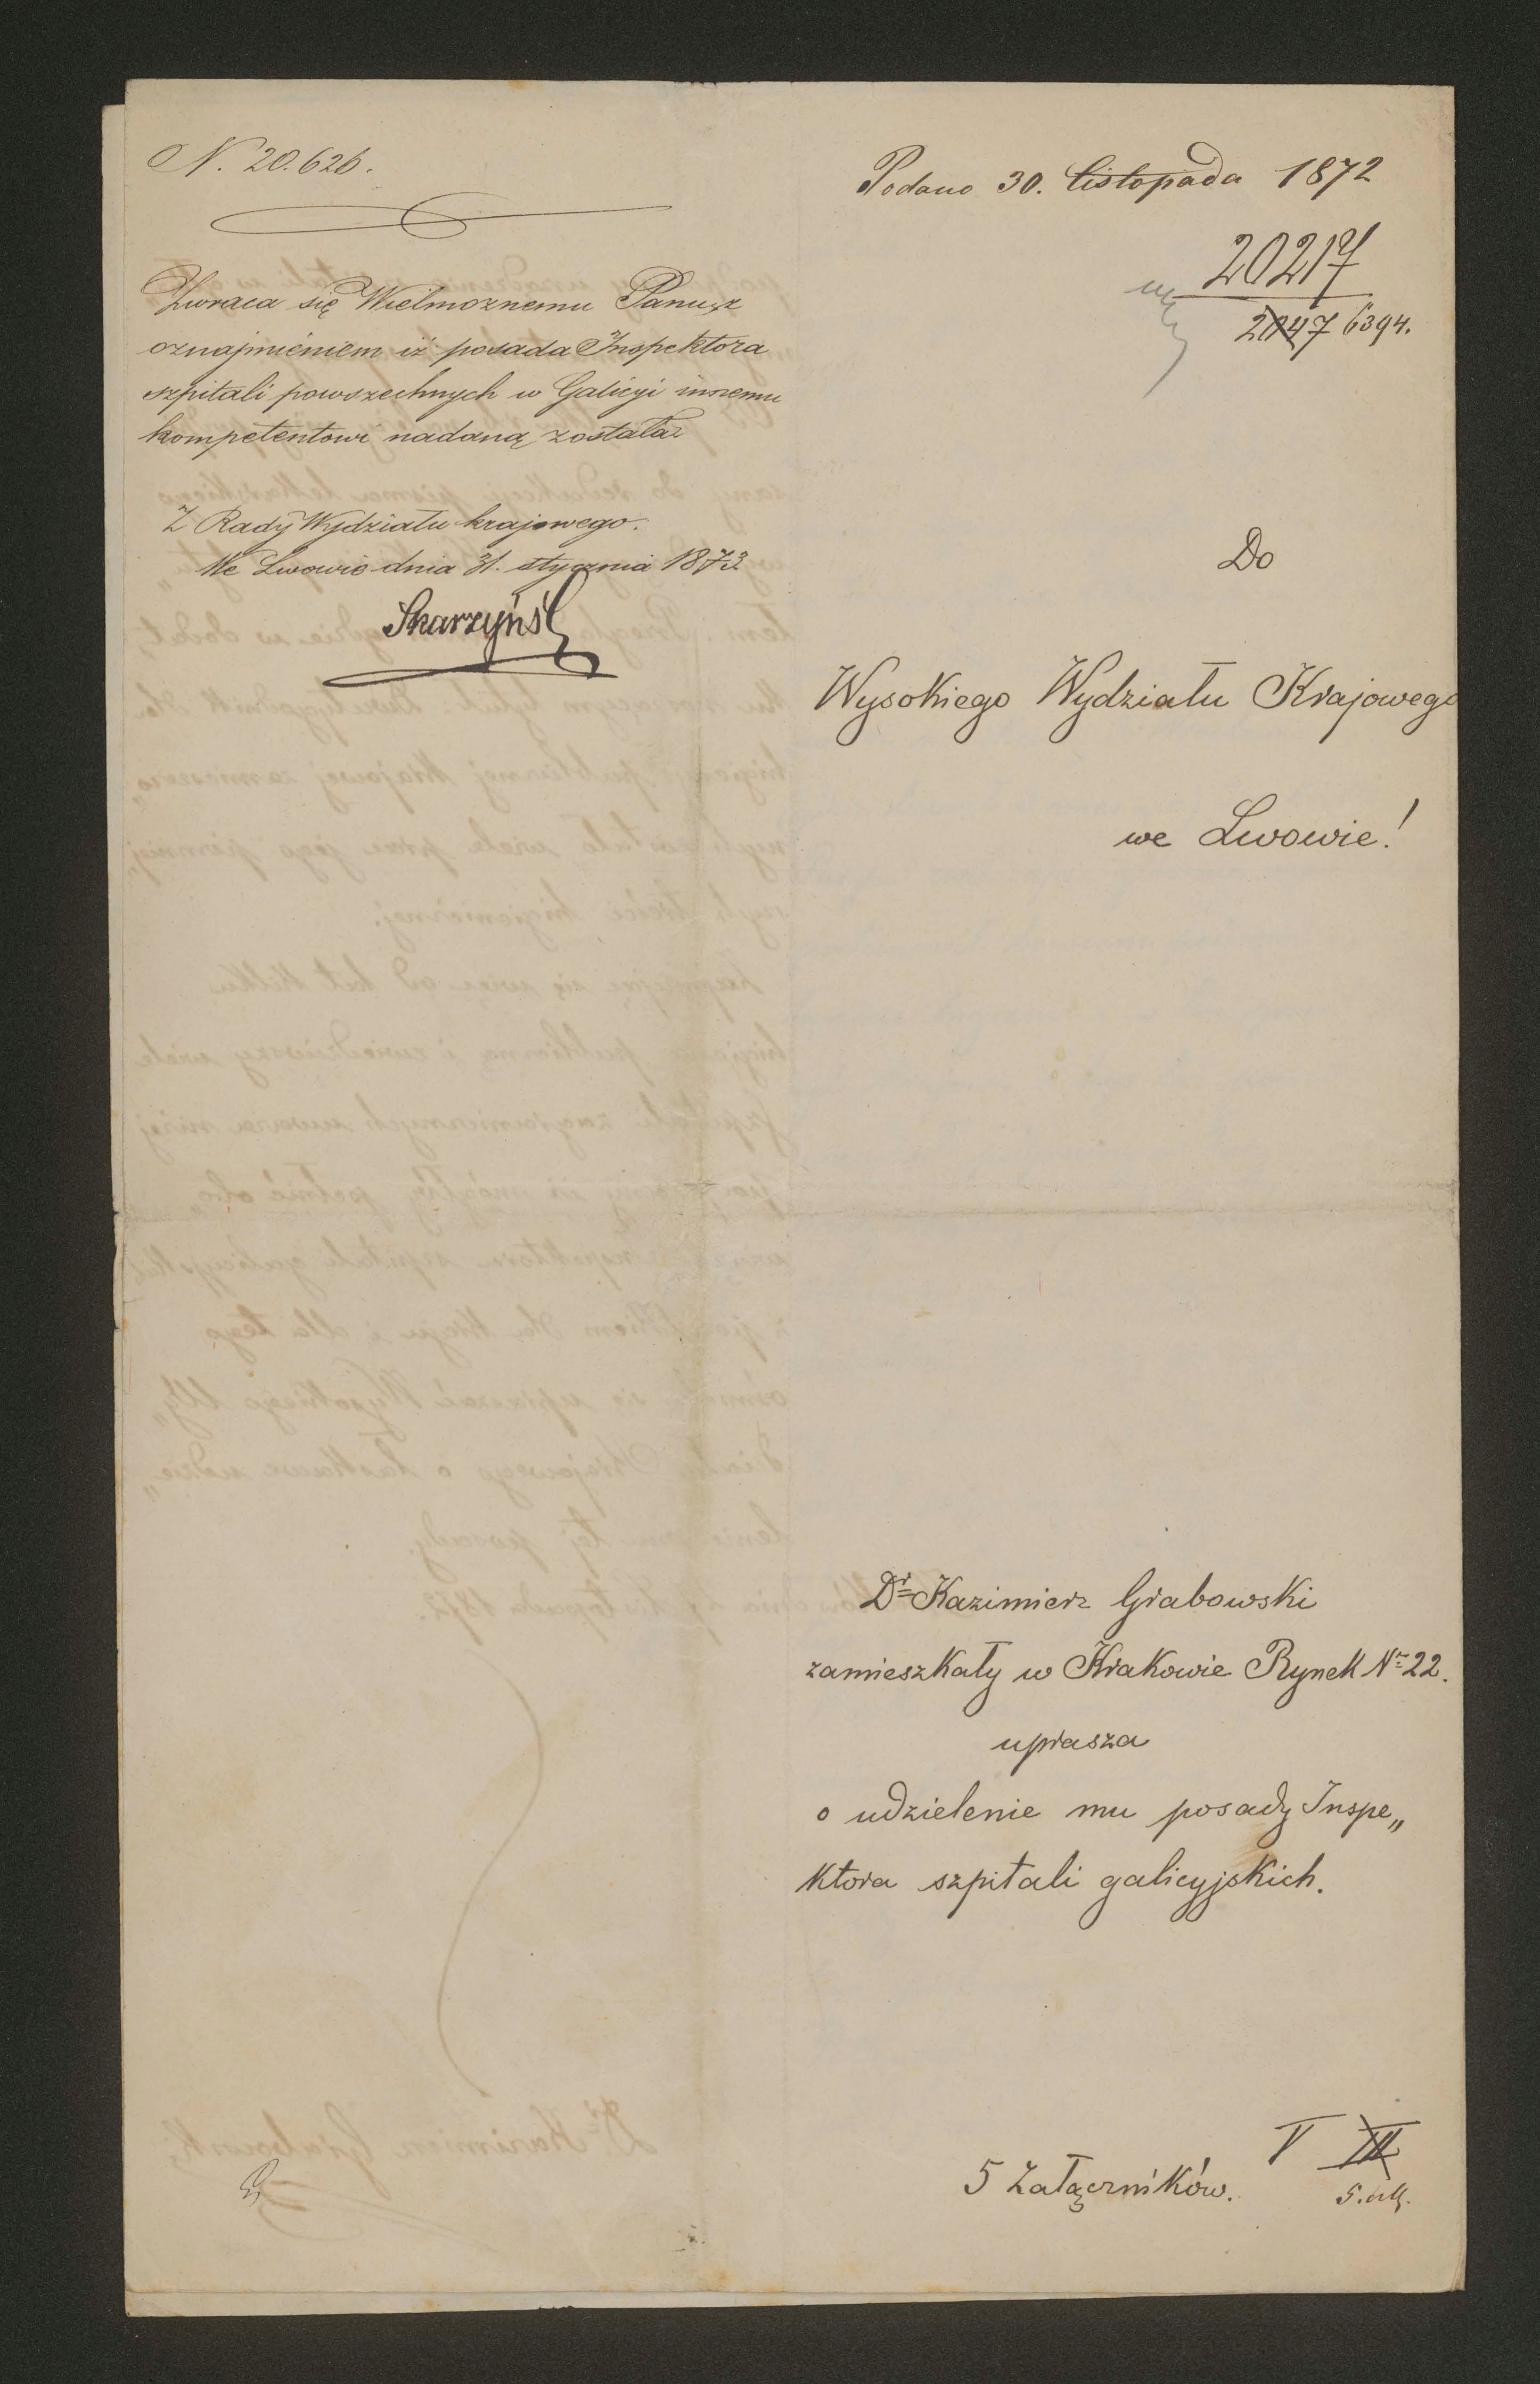 N. 20.626.
Zwraca się Wielmożnemu Panu z
oznajmieniem iż posada Inspektora
szpitali powszechnych w Galicyi innemu
kompetentowi nadaną została
Z Rady Wydziału krajowego.
We Lwowie dnia 31. stycznia 1873
Skarzyński
Podano 30. listopada 1872
20217
2047 6394.
Do
Wysokiego Wydziału Krajowego
we Lwowie!
Dr Kazimierz Grabowski
zamieszkały w Krakowie Rynek Nr 22.
uprasza
o udzielenie mu posady Inspe„
ktora szpitali galicyjskich.
5 Załączników.
V III
5. all.